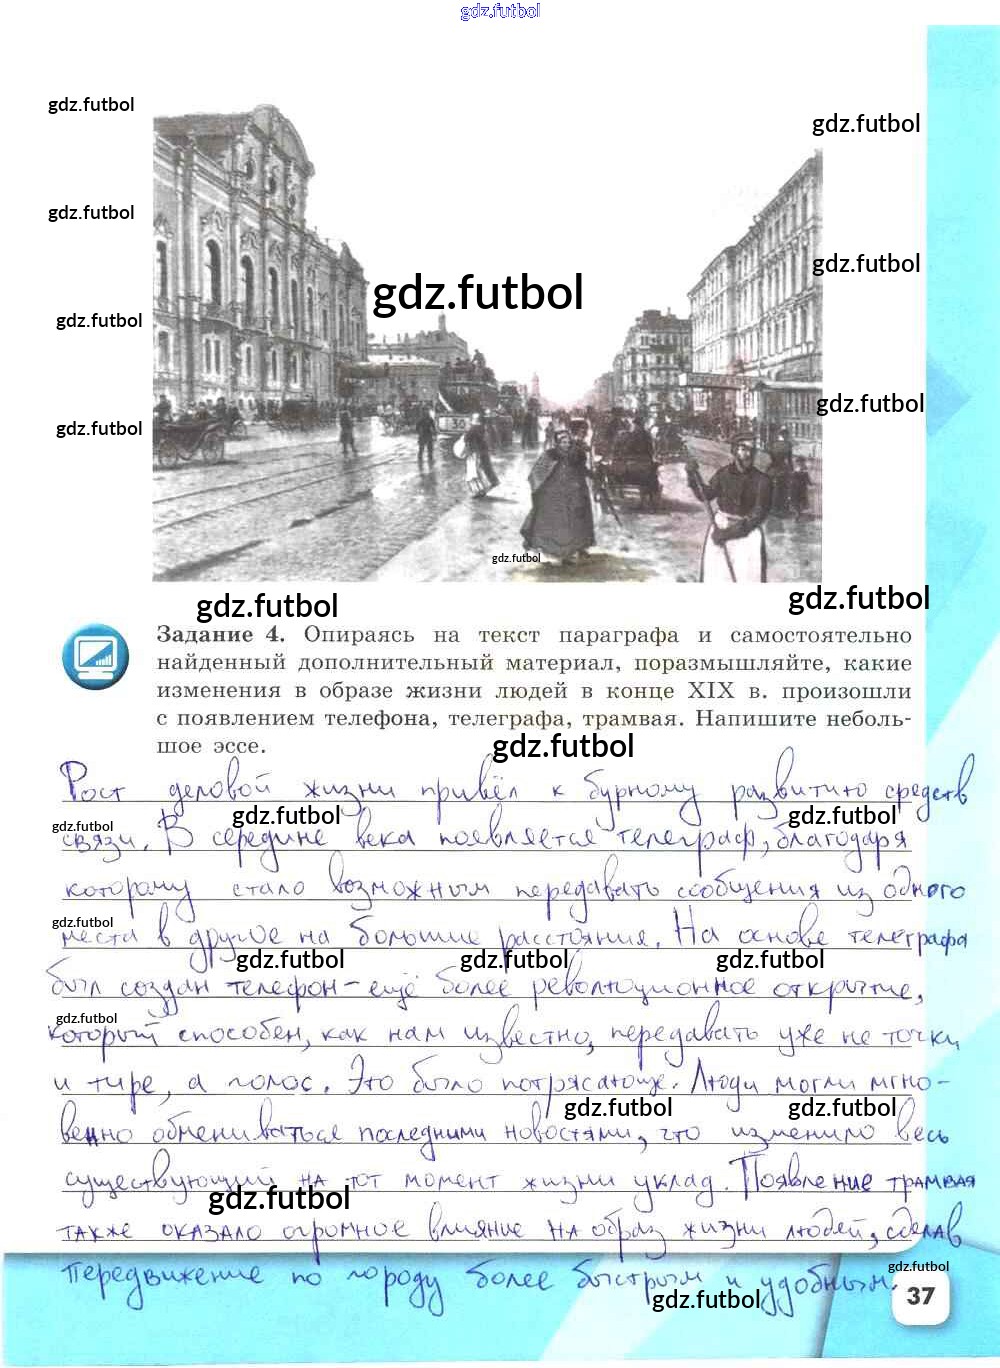 gdz.futbol
gdz.futbol
gdz.futbol
gdz.futbol
gdz.futbol
gdz.futbol
gdz.futbol
gdz.futbol
gdz.futbol
gdz.futbol
30
gdz.futbol
gdz.futbol
gdz.futbol
Задание 4. Опираясь на текст параграфа и самостоятельно
найденный дополнительный материал, поразмышляйте, какие
изменения в образе жизни людей в конце XIX в. произошли
с появлением телефона, телеграфа, трамвая. Напишите неболь-
шое эссе.
gdz.futbol
Рост деловой жизни привёл к бурному развитию средств
gdz.futbol gdz.futbol gdz.futbol
связи. В середине века появляется телеграф, благодаря
которому стало возможным передавать сообщения из одного
gdz.futbol
места в другое на большие расстояния. На основе телеграфа
gdz.futbol gdz.futbol gdz.futbol
был создан телефон – ещё более революционное открытие,
gdz.futbol
который способен, как нам известно, передавать уже не точки
и тире, а голос. Это было потрясающе. Люди могли мгно-
gdz.futbol gdz.futbol
венно обмениваться последними новостями, что изменило весь
существующий на тот момент жизни уклад. Появление трамвая
gdz.futbol
также оказало огромное влияние на образ жизни людей, сделав
передвижение по городу более быстрым и удобным.
gdz.futbol
gdz.futbol
37